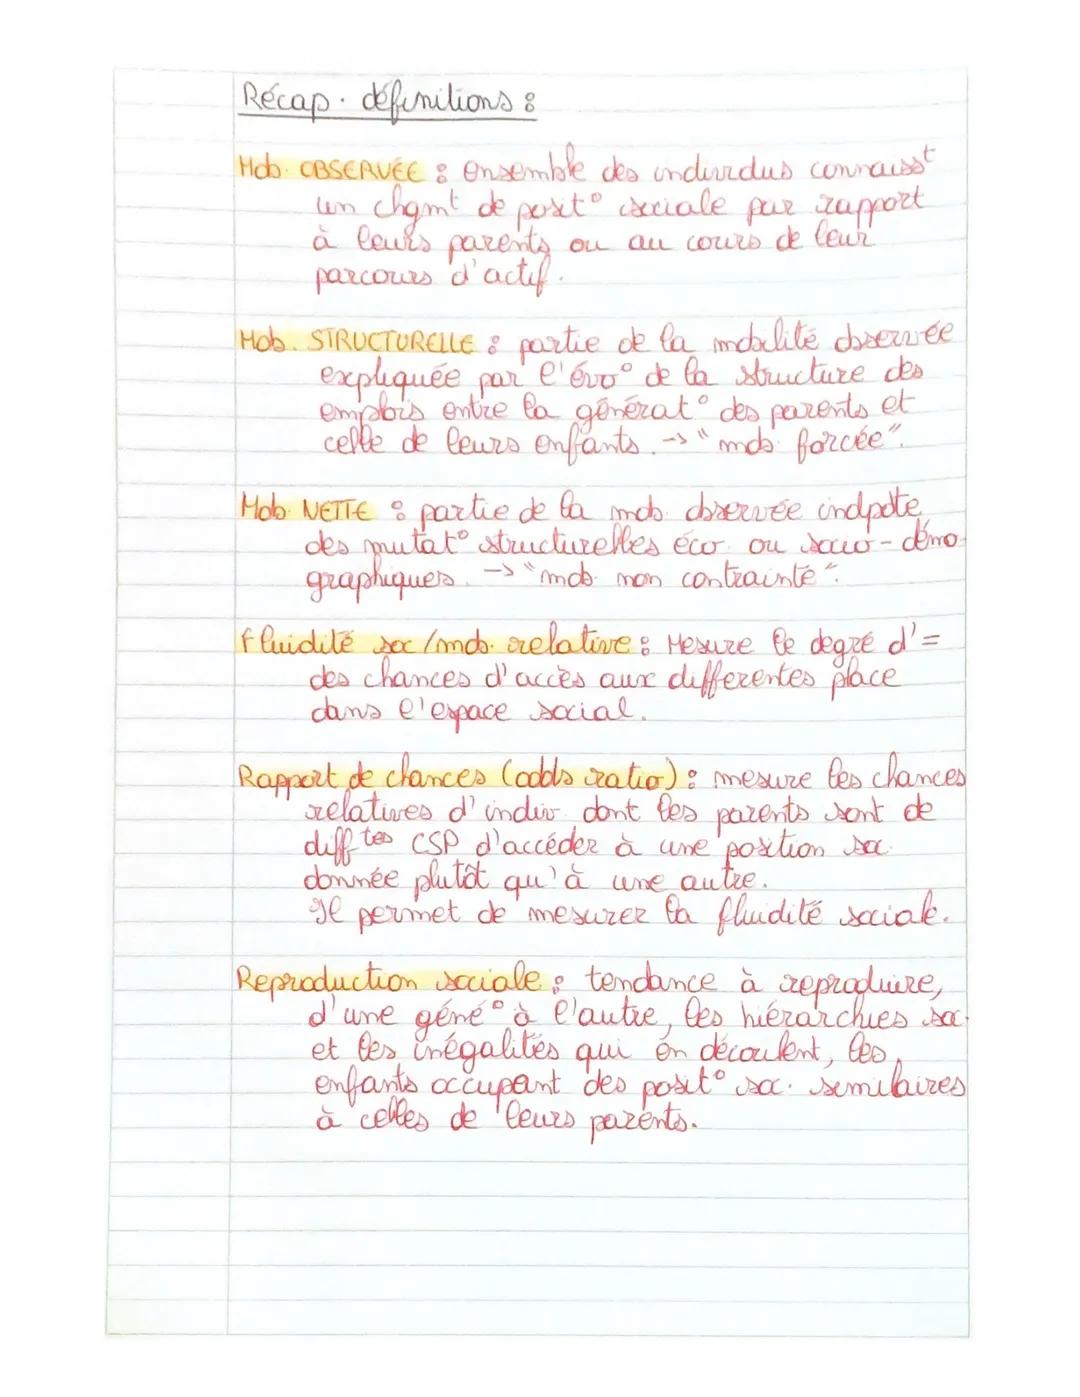 Récap. définitions :
Mob. OBSERVÉE : ensemble des individus connaisst
un chgmt de posit° sociale par rapport
à leurs parents ou au cours de leur
parcours d'actif.
Mob. STRUCTURELLE : partie de la mobilité observée
expliquée par l'évo° de la structure des
emplois entre la générat° des parents et
celle de leurs enfants. -> "mob. forcée".
Mob. NETTE : partie de la mob. observée indpdte
des mutat° structurelles éco. ou socio-démo-
graphiques. -> "mob. non contrainte".
Fluidité soc/mob. relative : Mesure le degré d'=
des chances d'accès aux differentes place
dans l'espace social.
Rapport de chances (odds ratio) : mesure les chances
relatives d'indiv. dont les parents sont de
difftes CSP d'accéder à une position soc.
donnée plutôt qu'à une autre.
Il permet de mesurer la fluidité sociale.
Reproduction sociale : tendance à reproduire,
d'une géné° à l'autre, les hiérarchies soc.
et les inégalités qui en découlent, les
enfants occupant des posit° soc. similaires
à celles de leurs parents.